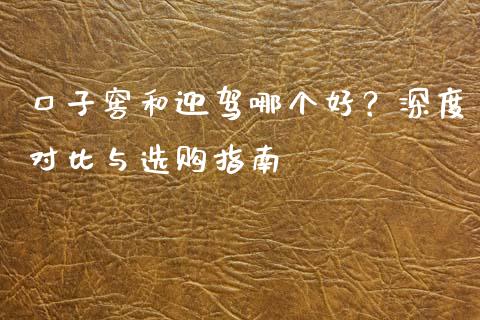 口子窖和迎驾哪个好？深度
对比与选购指南